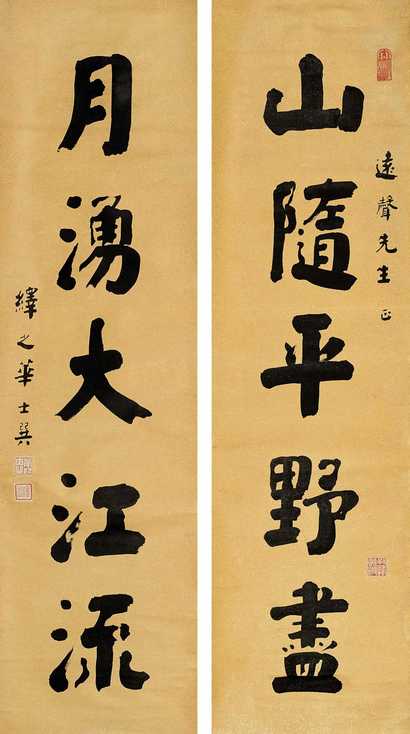 遠聲先生正
山隨平野盡
月湧大江流
繹之華士巽